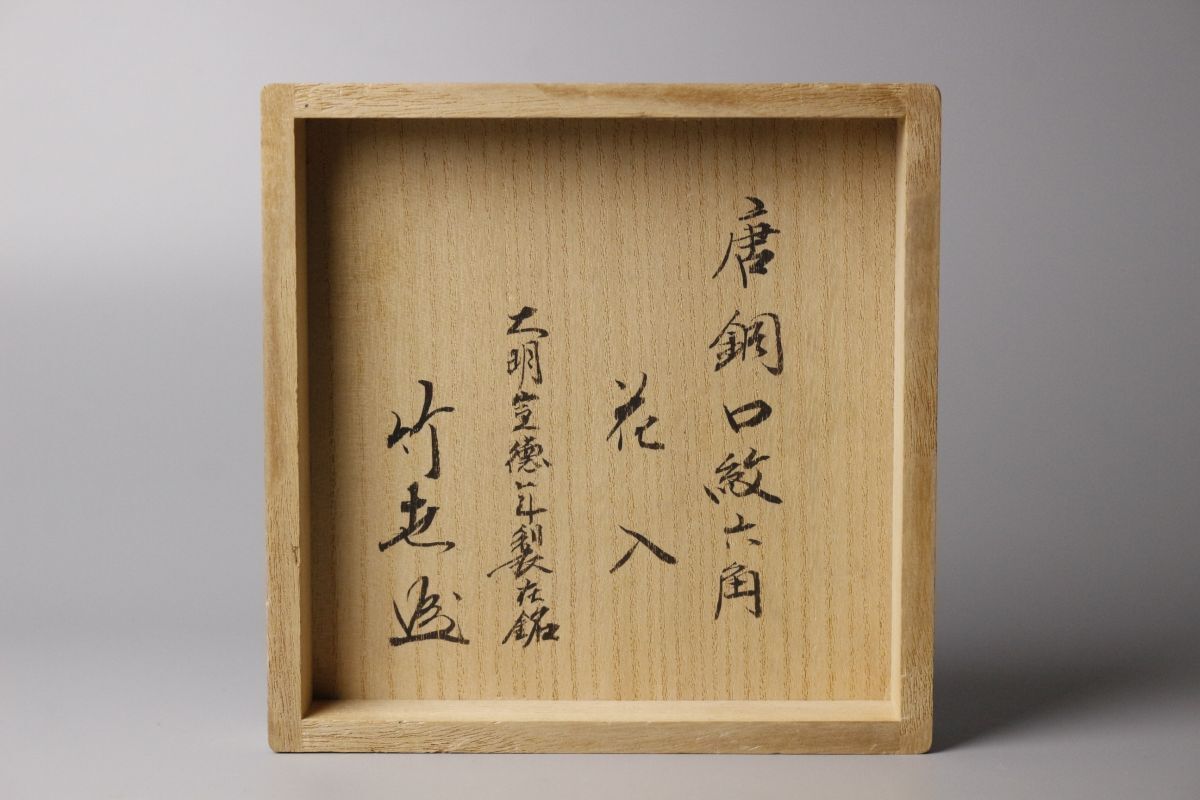 唐銅口紋六角
花入
大明宣徳年製在銘
竹